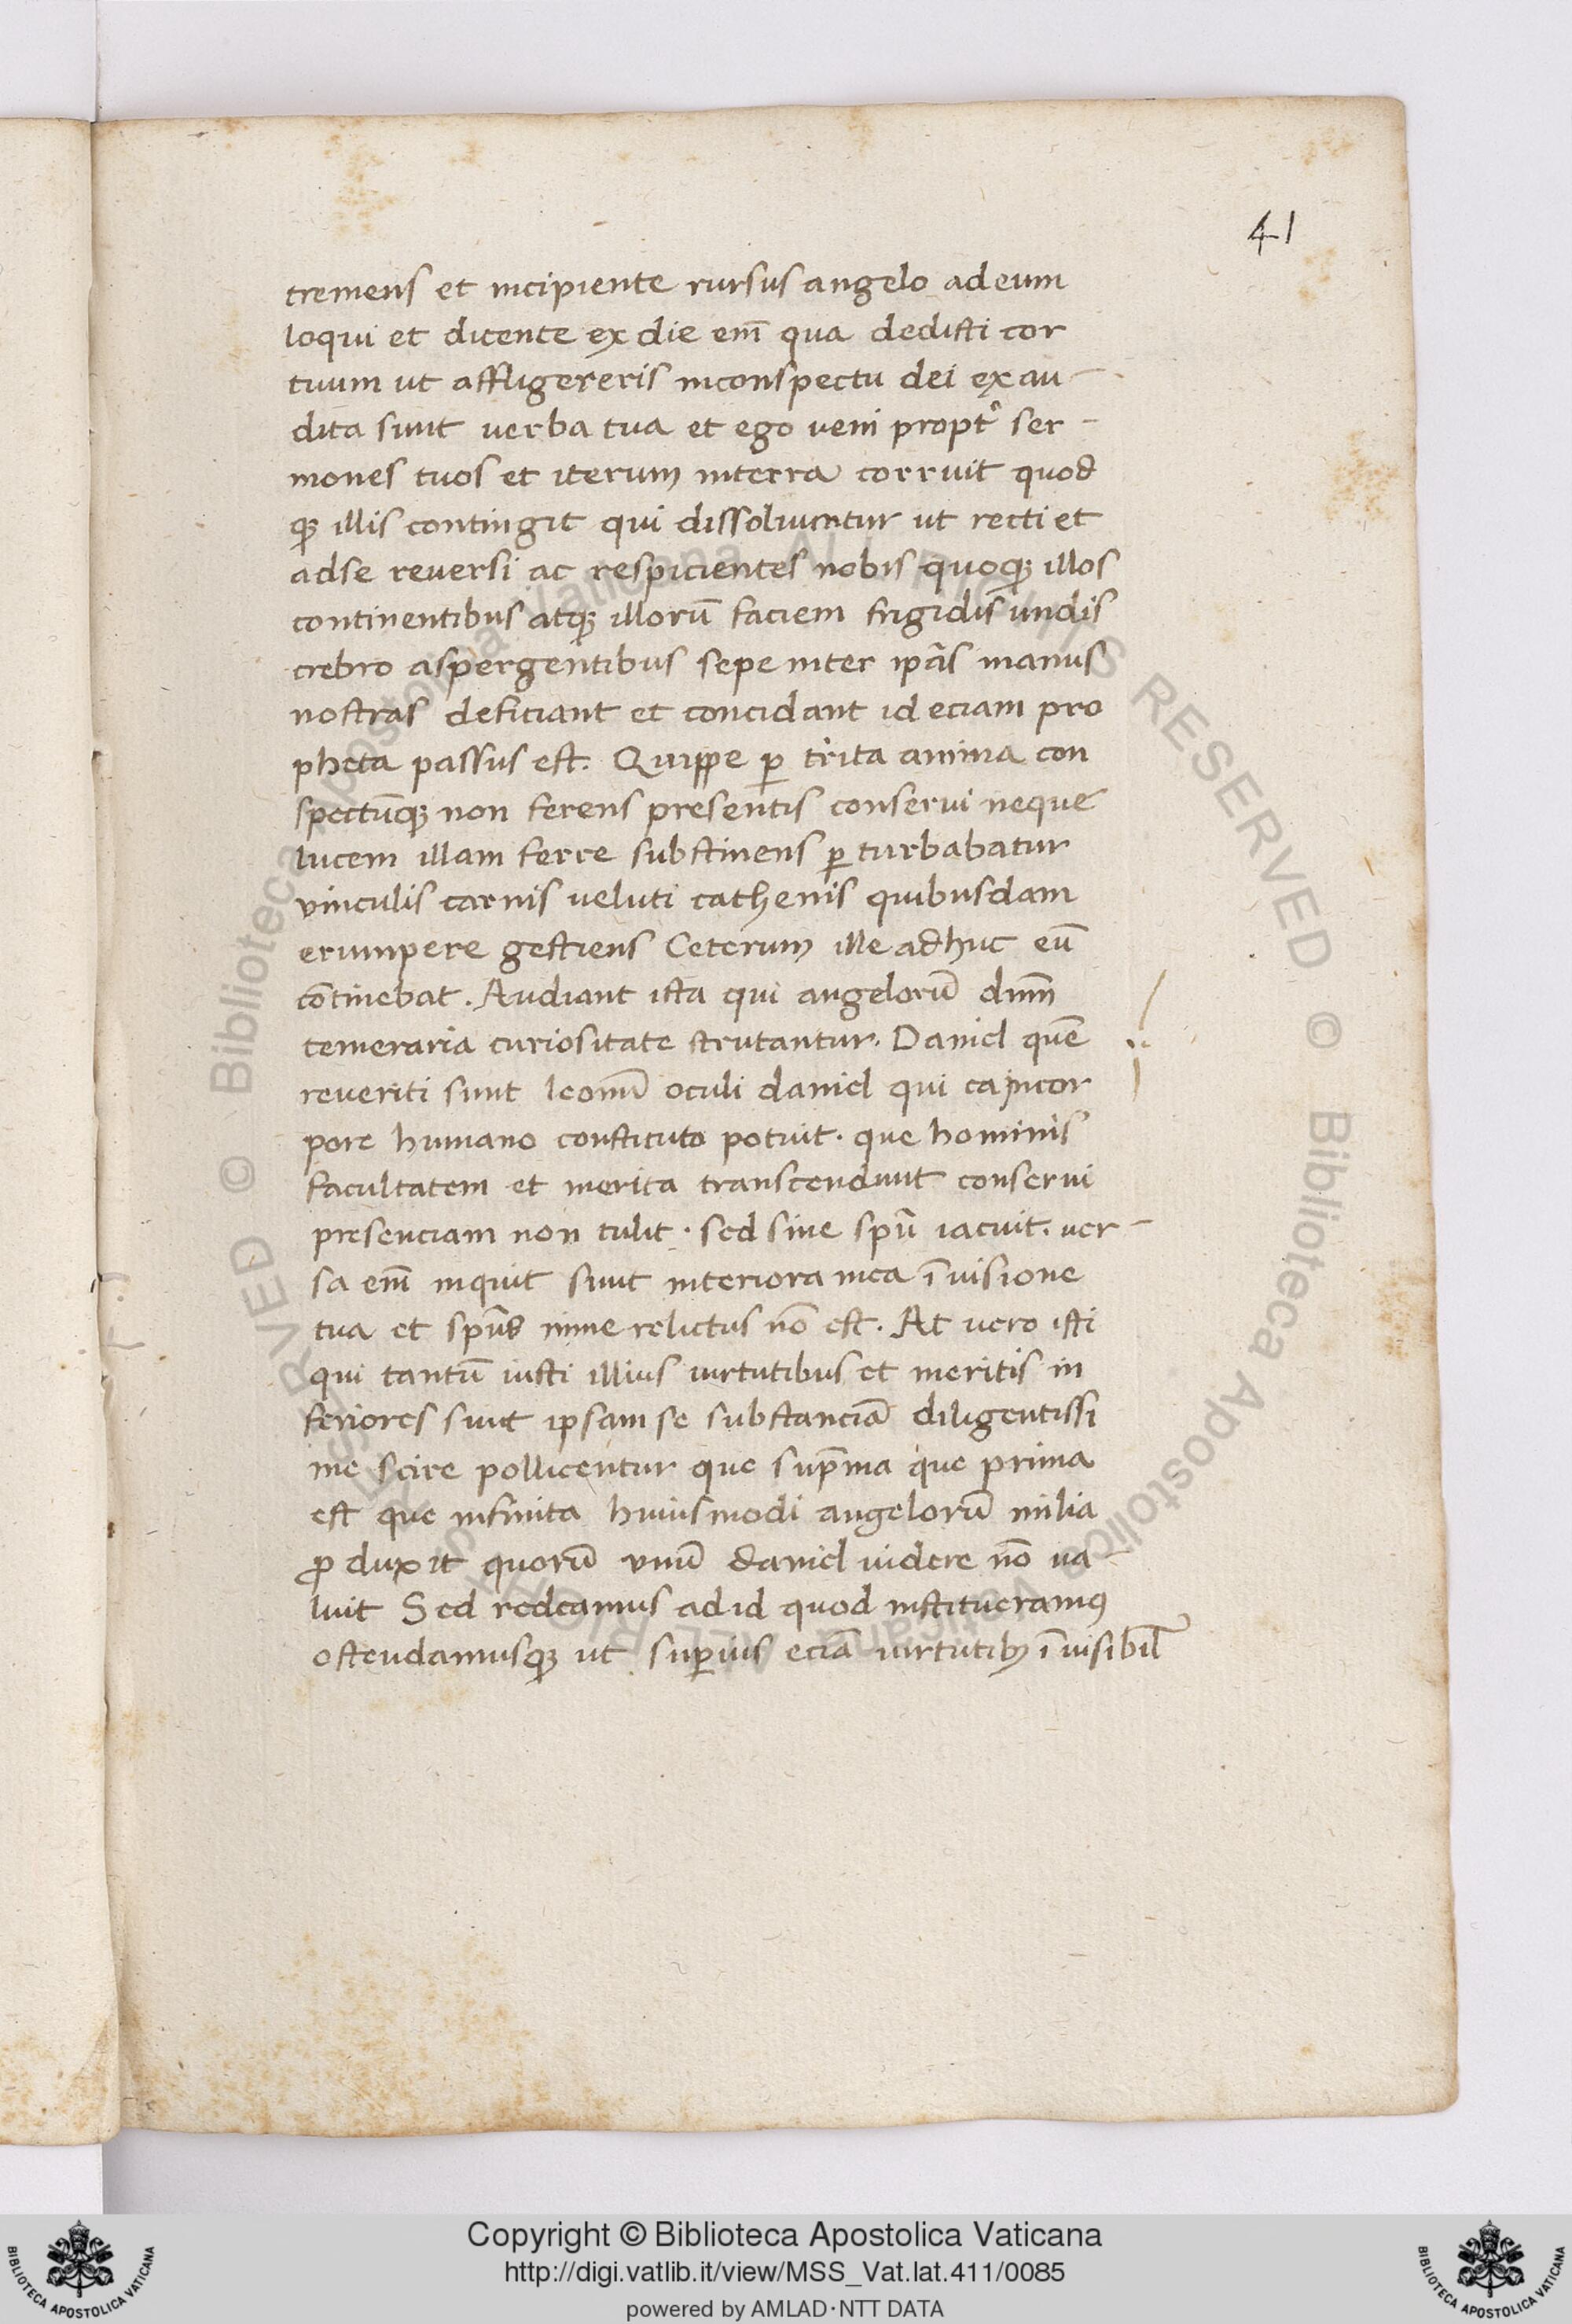 41
tremens et incipiente rursus angelo ad eum
loqui et dicente ex die em̅ qua dedisti cor
tuum ut affligereris inconspectu dei exau-
dita sunt verba tua et ego veni propt̉ ser-
mones tuos et iterum interra corruit quod
qꝫ illis contingit qui dissoluuntur ut recti et
adse reversi ac respicientes nobis quoqꝫ illos
continentibus atqꝫ illoru̅ faciem frigidis undis
crebro aspergentibus sepe inter ip̅as manus
nostras deficiant et concidant id eciam pro
pheta passus est. Quippe ꝑ trita anima con
spectu̅qꝫ non ferens presentis conservi neque
lucem illam ferre substinens ꝑ turbabatur
vinculis carnis veluti cathenis quibusdam
erumpere gestiens Ceterum ille adhuc eu̅
co̅tinebat. Audiant ista qui angeloru̅ dn̅m
temeraria curiositate scrutantur. Daniel que̅
reveriti sunt leonu̅ oculi daniel qui ea incor
pore humano constituto potuit. que hominis
facultatem et merita transcendunt conservi
presenciam non tulit. sed sine spu̅ iacuit. ver-
sa em̅ inquit sunt interiora mea i̅ visione
tua et spu̅s inme relictus no̅ est. At vero isti
qui tantu̅ iusti illius virtutibus et meritis in
feriores sunt ipsam se substancia̅ diligentissi
me scire pollicentur que sup̅ma que prima
est que infinita huiusmodi angeloru̅ milia
ꝓ duxit quoru̅ unu̅ daniel videre no̅ va-
luit Sed redeamus ad id quod institueramꝰ
ostendamusqꝫ ut suꝑius ecia̅ virtutibꝫ i̅ visibil̅
Copyright © Biblioteca Apostolica Vaticana
http://digi.vatlib.it/view/MSS_Vat.lat.411/0085
powered by AMLAD·NTT DATA